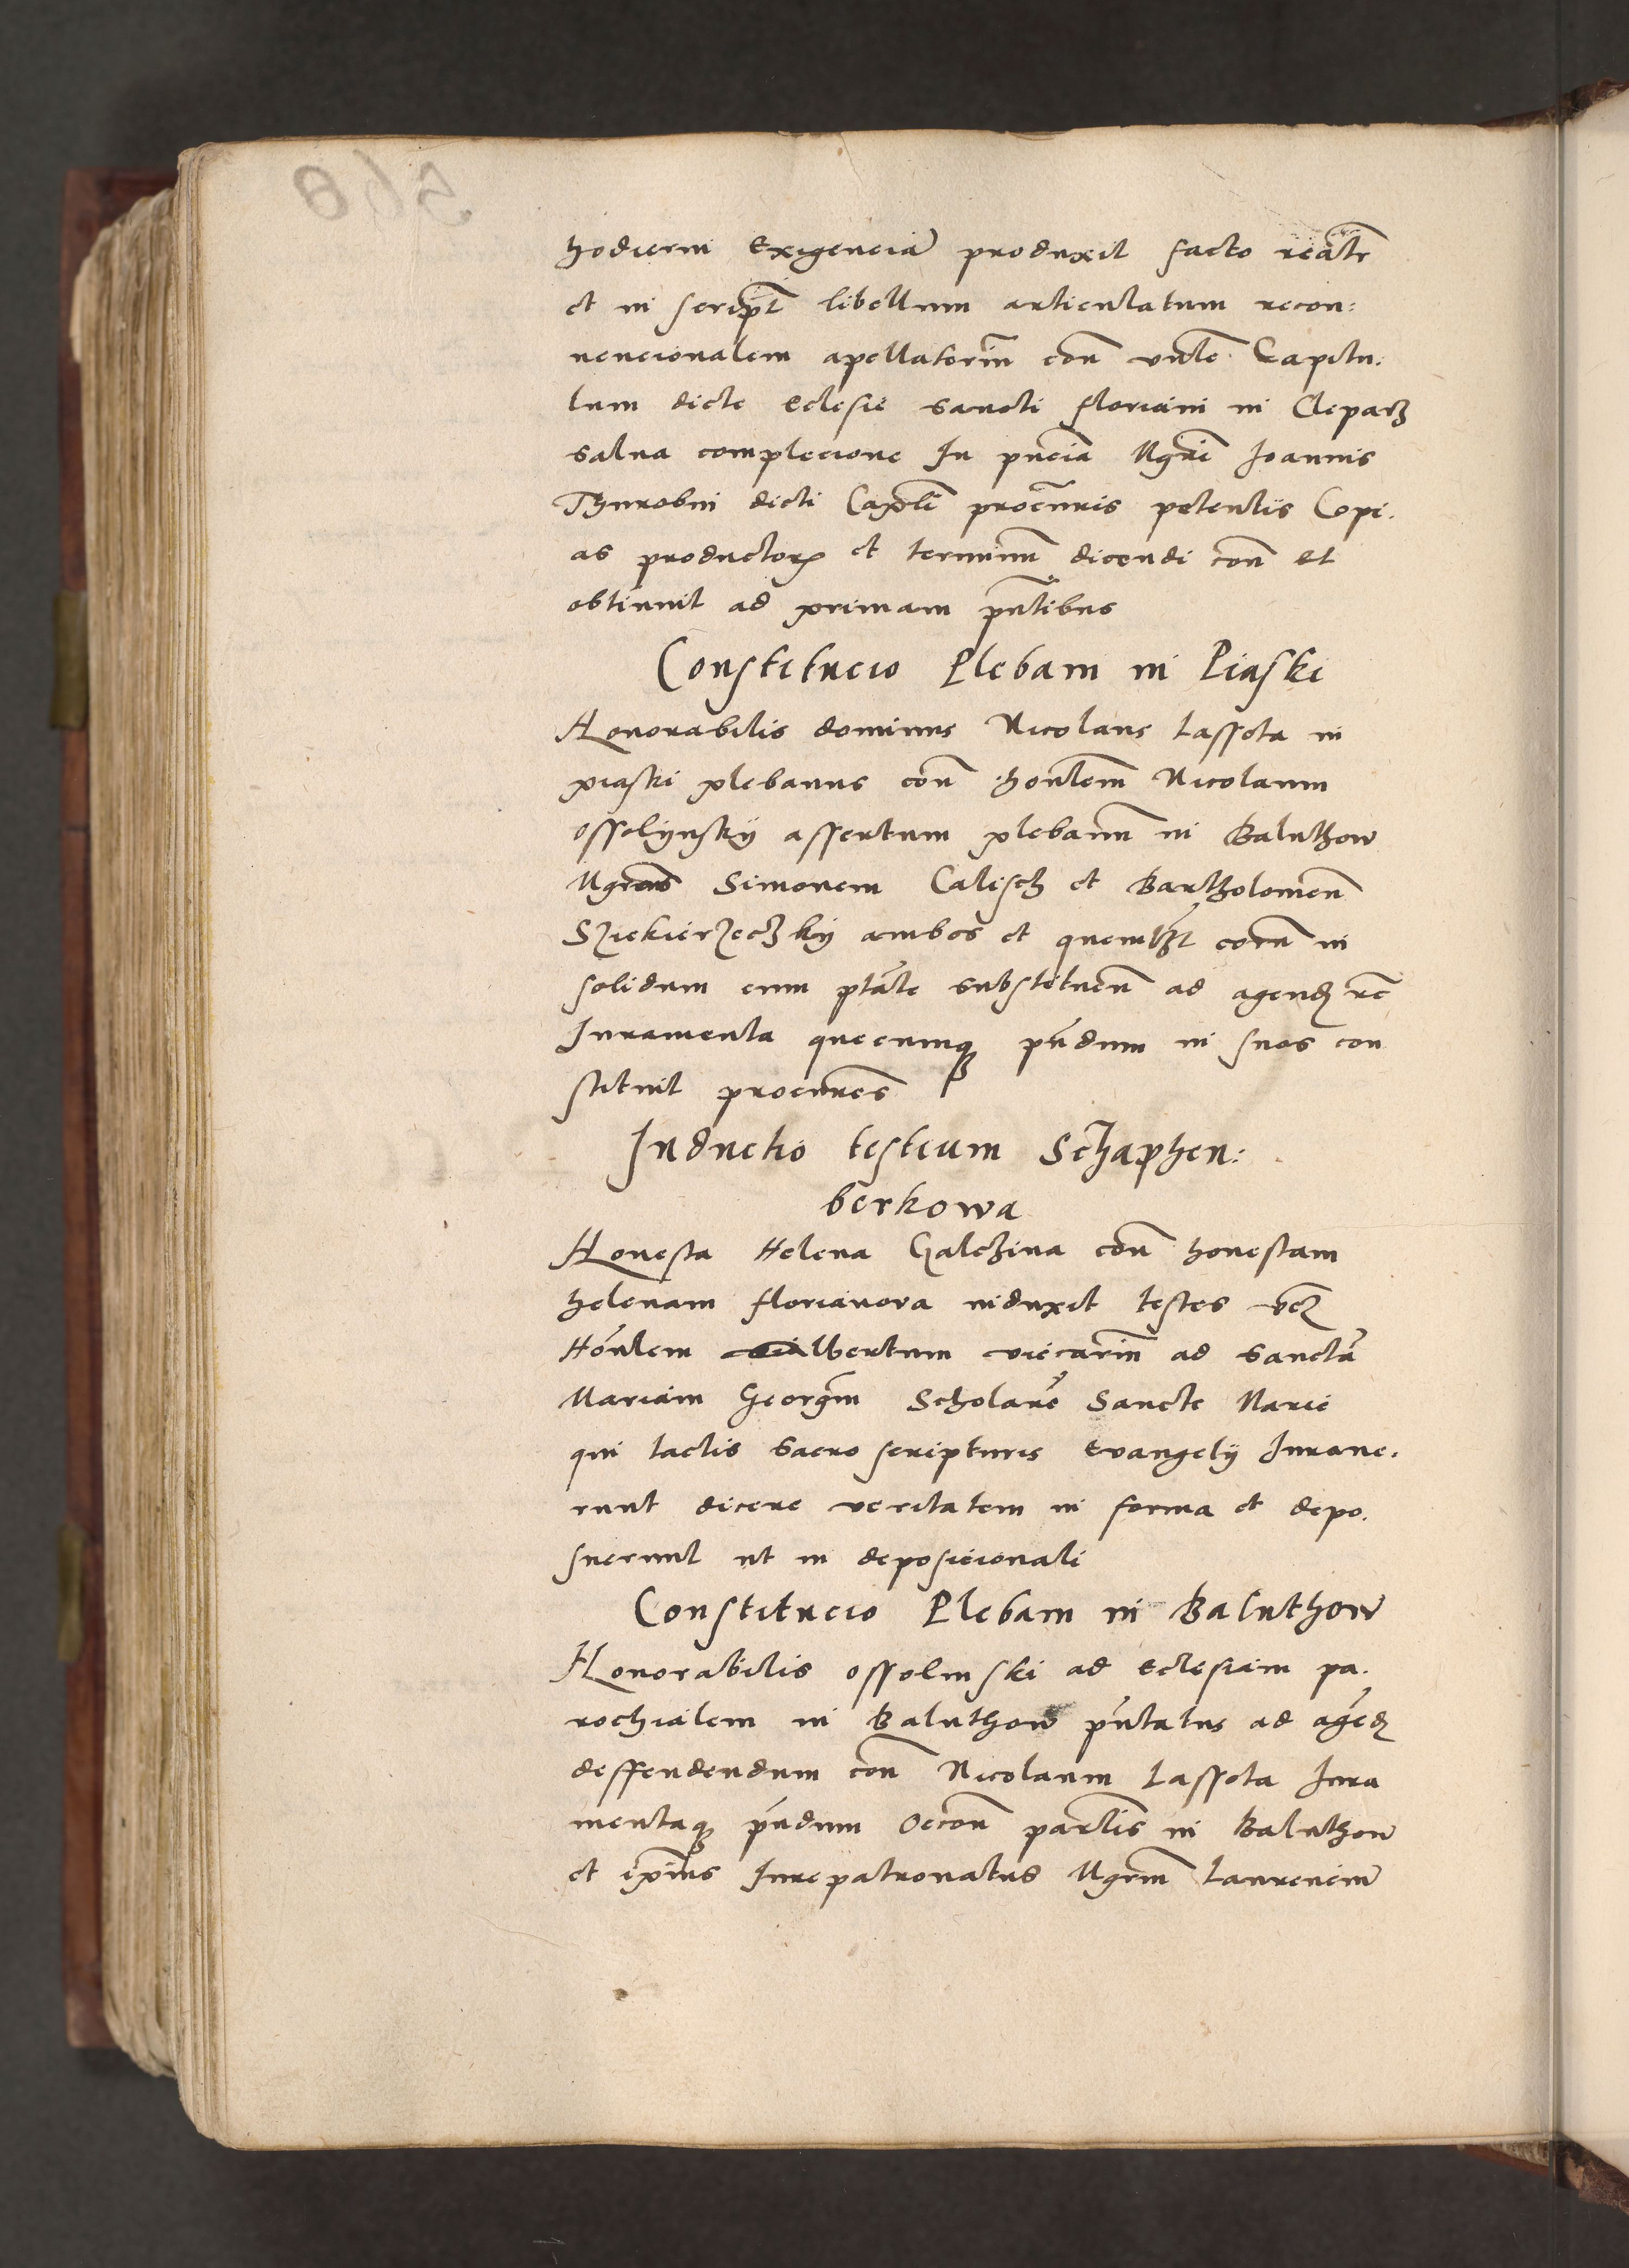 hodierni Exigencia produxit facto reatr
et in script libellum articulatum recon:
nencionalem apellatorim con vnle Capitu:
lum dicte Eclesie sancti floriani in Cleparz
salua complecione In pnciâ Mgri Joannis
Thurobin dicti Capli procuris petentis Copi.
as productorz et terminu dicendi con et
obtinuit ad primam pntibus
Constitucio Plebani in Piaski
Honorabilis dominus Nicolaus Lassota in
piaski plebanus con honlem Nicolaum
ossolynsky assertum plebanu in Baluthow
Mgros Simonem Calisch et Bartholomeu
Sziekierzeczky ambos et quemlzt coru in
solidum cum ptate substituen ad agendz rc
Juramenta quecumqz pndum in suos con
stituit procures
Inductio testium Schaphen:
berkowa
Honesta Helena Galczina con honestam
helenam florianova induxit testes
Honlem albertum vicarim ad sancta
Mariam Georgm Scholare Sancte Marie
qui tactis sacro scripturis Evangely Juraue.
runt dicere veritatem in forma et depo.
suerunt ut in deposicionali
Constitucio Plebani in Baluthow
Honorabilis ossolinski ad Eclesiam pa.
rochialem in Baluthow pntatus ad agedz
deffendendum con Nicolaum Lassota Jura
mentaqz pndum Occon partis in Baluthow
et ipius Jurepatronatus Mgrm Laurenciu